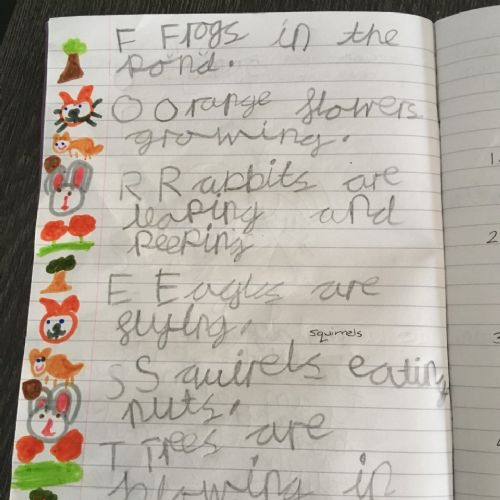 F Frogs in the
pond.
O Orange flowers
growing.
R Rabbits are
leaping and
peeping
E Eagles are
flying.
squirrels
S Squirels eating
nuts.
T Trees are
blowing in
1
2
3